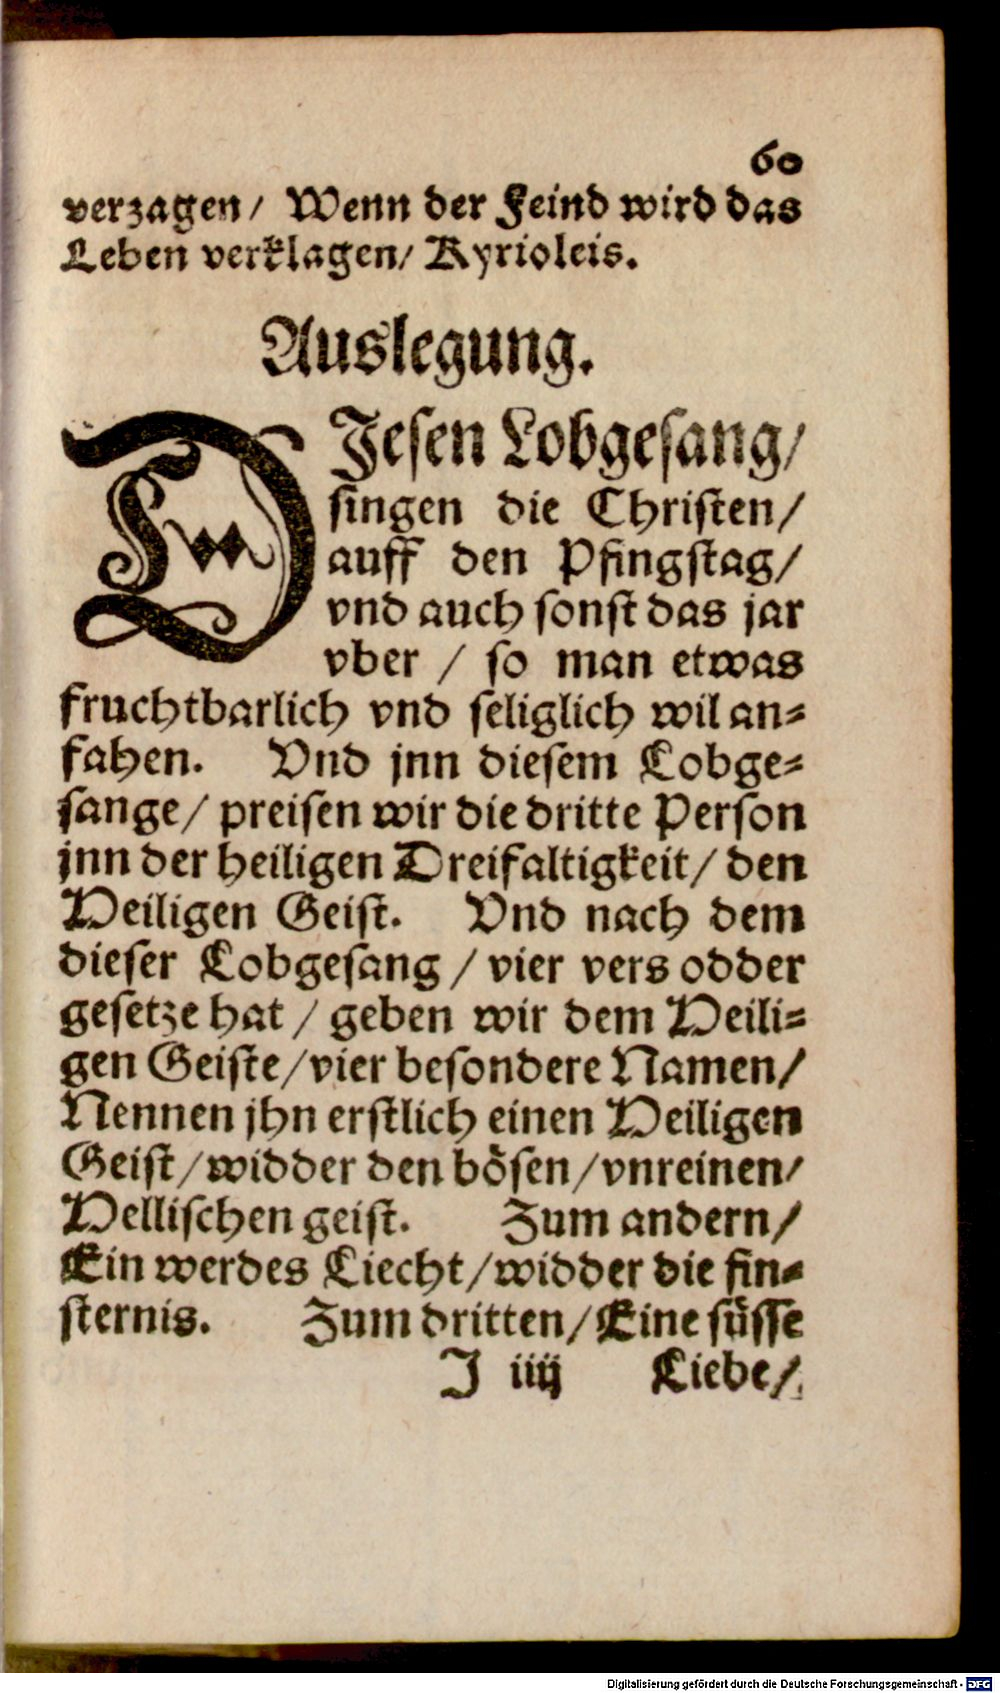 60
verzagen/ Wenn der Feind wird das
Leben verklagen/ Kyrioleis.
Auslegung.
DJesen Lobgesang/
singen die Christen/
auff den Pfingstag/
vnd auch sonst das jar
vber / so man etwas
fruchtbarlich vnd seliglich wil an=
fahen. Vnd jnn diesem Lobge=
sange/ preisen wir die dritte Person
jnn der heiligen Dreifaltigkeit/ den
Heiligen Geist. Vnd nach dem
dieser Lobgesang / vier vers odder
gesetze hat / geben wir dem Heili=
gen Geiste/vier besondere Namen/
Nennen jhn erstlich einen Heiligen
Geist/widder den bösen/vnreinen/
Hellischen geist. Zum andern/
Ein werdes Liecht/widder die fin=
sternis. Zum dritten/Eine süsse
J iiij Liebe/
Digitalisierung gefördert durch die Deutsche Forschungsgemeinschaft - DFG